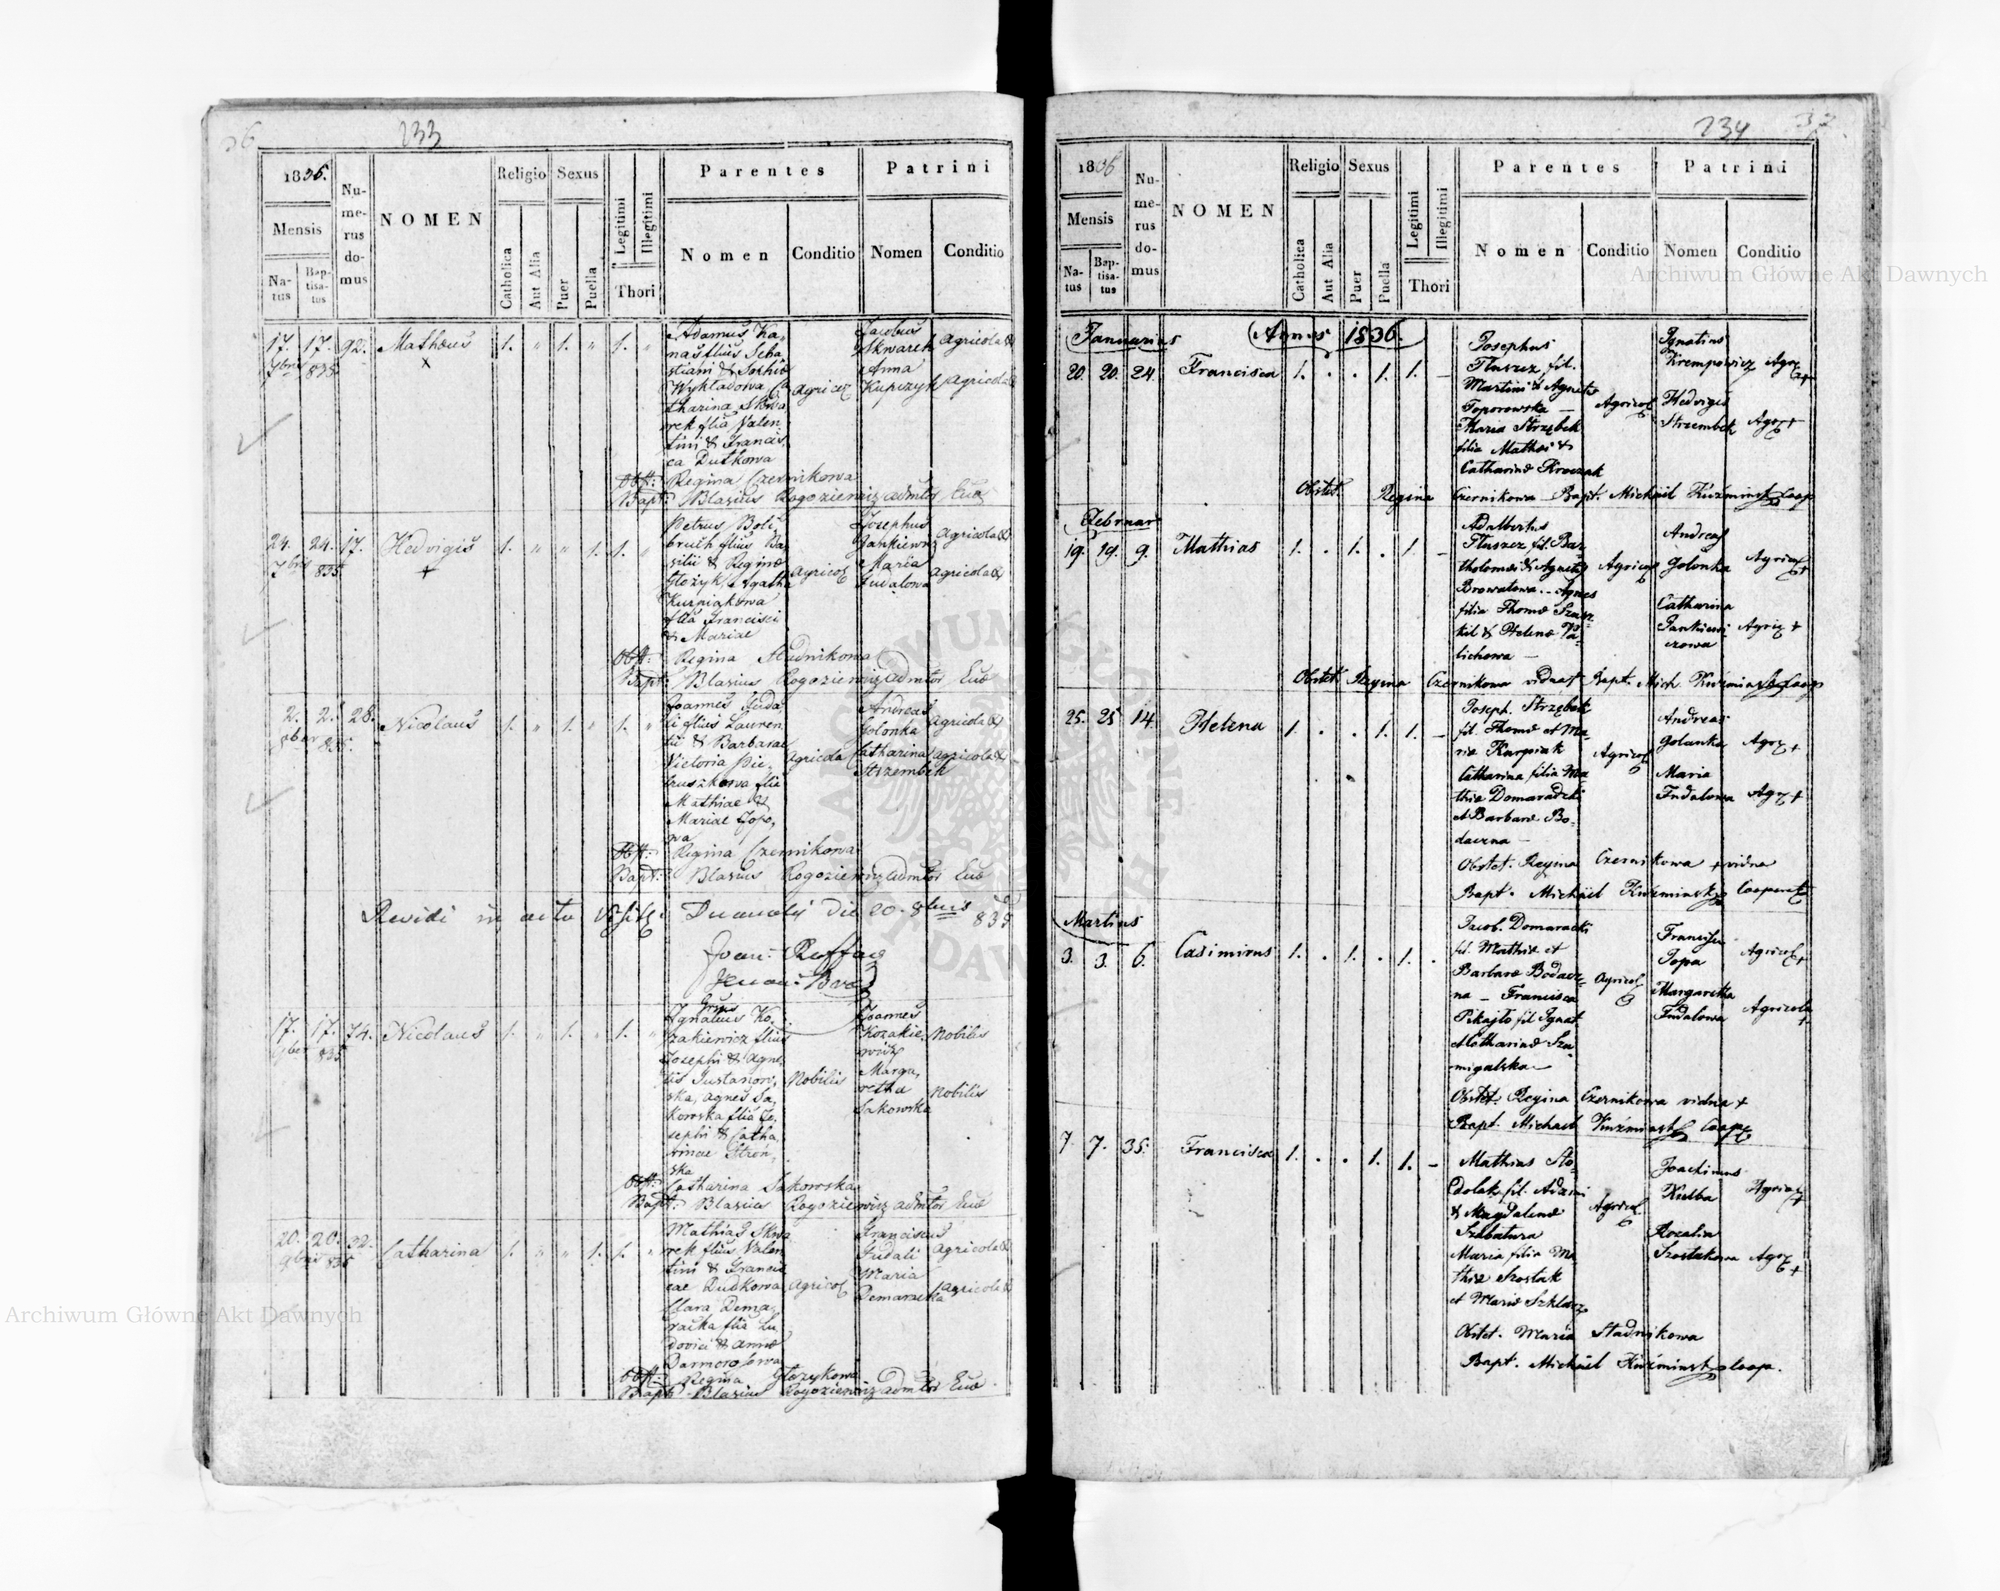 36
233
1835.
Mensis
Na-
tus
Bap-
tisa-
tus
Nu-
me-
rus
do-
mus
NOMEN
Religio
Catholica
Aut Alia
Sexus
Puer
Puella
Legitimi
Illegitimi
Thori
Parentes
Nomen
Conditio
Patrini
Nomen
Conditio
17. 17. 92. Mathæus 1. " 1. " 1. "
7bris 835
×
Adamus Ka-
nas filius Seba-
stiani & Sophiæ
Wykladowa Ca-
tharina Skwa-
rek filia Valen-
tini & Francis-
ca Dutkowa
Agricol
Jacobus
Skwarek
Agricola
Anna
Kupczyk
Agricola
Obst: Regina Czernikowa
Bapt: Blasius Rogoziewicz admtor Eccl
24. 24. 17. Hedvigis 1. " " 1. 1. "
7bris 835
+
Petrus Boli-
bruch filius Ba-
silii & Reginæ
Głozyk Agatha
Kurpiakowa
filia Francisci
& Mariae
Agricol
Josephus
Jankiewicz
Agricola
Maria
Fudalowa
agricola
Obst: Regina Stadnikowa
Bapt: Blasius Rogoziewicz admtor Eccl
2. 2. 28. Nicolaus 1. " 1. " 1. "
8bris 835.
Joannes Fuda-
li filius Lauren-
tii & Barbarae
Victoria Pie-
truszkowa filia
Mathiae &
Mariae Zopo-
wa
Agricola
Andreas
Golonka
agricola
Catharina
Strzembek
agricola
Obst: Regina Czernikowa
Bapt: Blasius Rogoziewicz admtor Eccl
Revidi in actu Decanalis die 20. 8bris 835
17. 17. 74. Nicolaus 1. " 1. " 1. "
9bris 835
Ignatius Ko-
zakiewicz filius
Josephi & Agne-
tis Justanow-
ska, Agnes Sa-
kowska filia Jo-
sephi & Catha-
rinae Stron-
ska
Nobilis
Joannes
Kozakie-
wicz
Nobilis
Marga-
retha
Sakowska
Nobilis
Obst: Catharina Sakowska
Bapt: Blasius Rogoziewicz admtor Eccl
20. 20. 32. Catharina 1. " " 1. 1. "
9bris 835
Mathias Skwa-
rek filius Valen-
tini & Francis-
cae Dudkowa
Clara Dema-
racka filia Lu-
dovici & Annæ
Agricol
Franciscus
Fudali
agricola
Maria
Demaracka
agricola
Obst: Regina Głozykowa
Bapt: Blasius Rogoziewicz admtor Eccl
234
37
1836
Mensis
Na-
tus
Bap-
tisa-
tus
Nu-
me-
rus
do-
mus
NOMEN
Religio
Catholica
Aut Alia
Sexus
Puer
Puella
Legitimi
Illegitimi
Thori
Parentes
Nomen
Conditio
Patrini
Nomen
Conditio
Januarius Annus 1836.
20. 20. 24. Francisca 1. . . 1. 1. -
Josephus
Tluszcz fil.
Martini & Agnetis
Toporowska —
Maria Strzębek
filia Mathæi &
Catharinæ Kroczak
Agricol
Ignatius
Krempowicz Agr
Hedvigis
Strzembek Agr +
Obstet. Regina Czernikowa Bapt. Michaël Kuźminski Coop
Februar
19. 19. 9. Mathias 1. . 1. . 1. -
Adalbertus
Tluszcz fil. Bar-
tholomei & Agnetis
Browatowa - Agnes
filia Thomæ Szasz-
kil & Helenæ Pa-
lichowa —
Agricol
Andreas
Golonka Agricol
Catharina
Jankiewi-
czowa Agric +
Obstet. Regina Czernikowa vidua Bapt. Mich. Kuźminski Coop
25. 25. 14. Helena 1. . . 1. 1. -
Joseph. Strzębek
fil. Thomæ et Ma-
riæ Kurpiak
Catharina filia Ma-
thiæ Domaradzki
et Barbaræ Bo-
daczna —
Agricol
Andreas
Golanka Agr +
Maria
Fudalowa Agr +
Obstet. Regina Czernikowa + vidua
Bapt. Michaël Kuźminski Cooperat
Martius
3. 3. 6. Casimirus 1. . 1. . 1. .
Jacob. Domaracki
fil. Mathiæ et
Barbaræ Bodacz-
na — Francisca
Pikajło fil Ignat
et Catharinæ Szu-
migalska —
Agricol
Francisc
Popa Agricol
Margaretha
Fudalowa Agricola
Obstet. Regina Czernikowa vidua +
Bapt. Michael Kuźminski Coop
7 7. 35. Francisca 1. . . 1. 1. -
Mathias Sto-
dolak fil. Adami
& Magdalenæ
Szabatura
Maria filia Ma-
thiæ Szostak
et Mariæ Szklarz
Agricol
Joachimus
Kielba Agricol
Rozalia
Szostakowa Agr +
Obstet. Maria Stadnikowa
Bapt. Michael Kuźminski Coop.
Archiwum Główne Akt Dawnych
Archiwum Główne Akt Dawnych